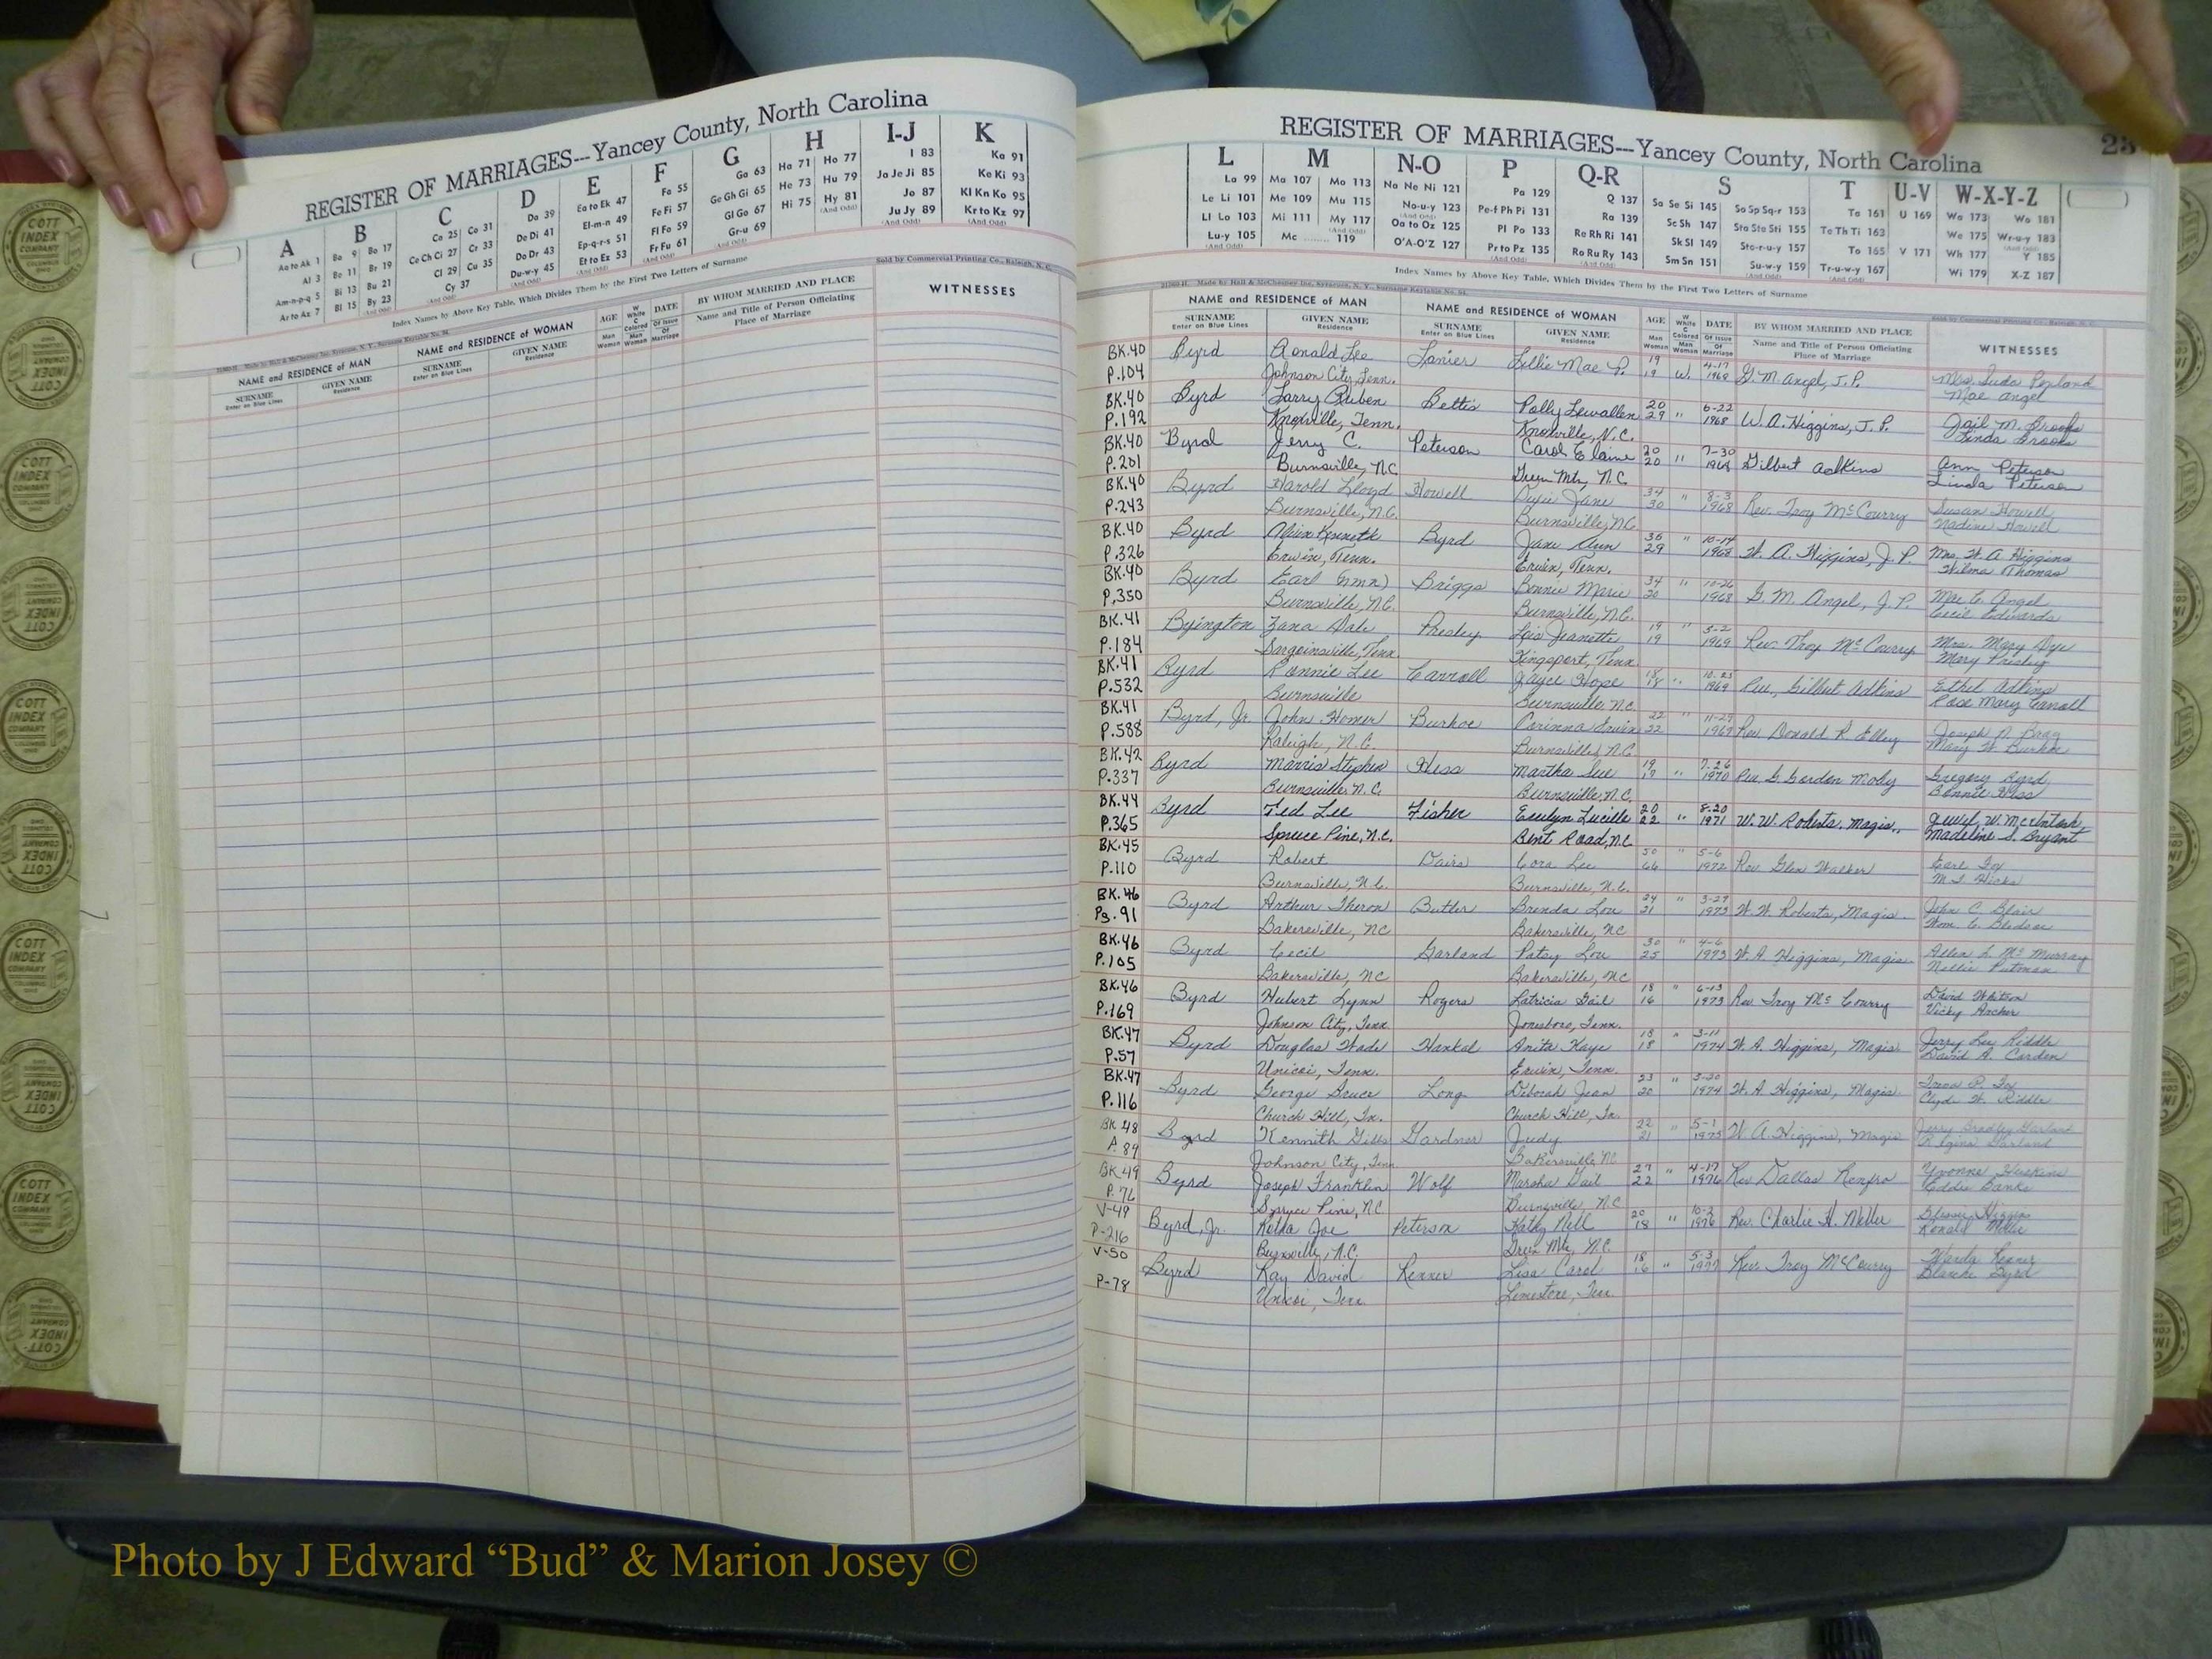 REGISTER OF MARRIAGES---Yancey County, North Carolina
A B C D E F G H I-J K
Aa to Ak 1 Ba 9 Bo 17 Ca 25 Co 31 Da 39 Ea to Ek 47 Fa 55 Ga 63 Ha 71 Ho 77 I 83 Ka 91
Al 3 Be 11 Br 19 Ce Ch Ci 27 Cr 33 De Di 41 El-m-n 49 Fe Fi 57 Ge Gh Gi 65 He 73 Hu 79 Ja Je Ji 85 Ke Ki 93
Am-n-p-q 5 Bi 13 Bu 21 Cl 29 Cu 35 Do Dr 43 Ep-q-r-s 51 Fl Fo 59 Gl Go 67 Hi 75 Hy 81 Jo 87 Kl Kn Ko 95
Ar to Az 7 Bl 15 By 23 Cy 37 Du-w-y 45 Et to Ez 53 Fr Fu 61 Gr-u 69 Ju Jy 89 Kr to Kz 97
Index Names by Above Key Table, Which Divides Them by the First Two Letters of Surname
Sold by Commercial Printing Co., Raleigh, N. C.
NAME and RESIDENCE of MAN NAME and RESIDENCE of WOMAN AGE DATE BY WHOM MARRIED AND PLACE WITNESSES
SURNAME Enter on Blue Lines GIVEN NAME Residence SURNAME Enter on Blue Lines GIVEN NAME Residence Man Woman W White C Colored Man Woman Of Issue Of Marriage Name and Title of Person Officiating Place of Marriage
REGISTER OF MARRIAGES---Yancey County, North Carolina
23
L M N-O P Q-R S T U-V W-X-Y-Z
La 99 Ma 107 Mo 113 Na Ne Ni 121 Pa 129 Q 137 Sa Se Si 145 So Sp Sq-r 153 Ta 161 U 169 Wa 173 Wo 181
Le Li 101 Me 109 Mu 115 No-u-y 123 Pe-f Ph Pi 131 Ra 139 Sc Sh 147 Sta Ste Sti 155 Te Th Ti 163 We 175 Wr-u-y 183
Ll Lo 103 Mi 111 My 117 Oa to Oz 125 Pl Po 133 Re Rh Ri 141 Sk Sl 149 Sto-r-u-y 157 To 165 V 171 Wh 177 Y 185
Lu-y 105 Mc 119 O'A-O'Z 127 Pr to Pz 135 Ro Ru Ry 143 Sm Sn 151 Su-w-y 159 Tr-u-w-y 167 Wi 179 X-Z 187
Index Names by Above Key Table, Which Divides Them by the First Two Letters of Surname
NAME and RESIDENCE of MAN NAME and RESIDENCE of WOMAN AGE DATE BY WHOM MARRIED AND PLACE WITNESSES
SURNAME Enter on Blue Lines GIVEN NAME Residence SURNAME Enter on Blue Lines GIVEN NAME Residence Man Woman W White C Colored Man Woman Of Issue Of Marriage Name and Title of Person Officiating Place of Marriage
BK.40 Byrd Ronald Lee Lanier Lillie Mae P. 19 4-17 G. M. Angel, J.P.
P.104 Johnson City, Tenn. 19 W. 1968 Mae Angel
BK.40 Byrd Larry Ruben Bettis Polly Lewallen 20 6-22 W. A. Higgins, J. P. Gail M. Brooks
P.192 Knoxville, Tenn. Knoxville, N.C. 29 " 1968 Linda Brooks
BK.40 Byrd Jerry C. Peterson Carol Elaine 20 7-30 Gilbert Adkins Ann Peterson
P.201 Burnsville, NC Green Mtn, N.C 20 " 1968 Linda Peterson
BK.40 Byrd Harold Lloyd Howell Dixie Jane 34 8-3 Rev. Troy McCourry Susan Howell
P.243 Burnsville, N.C. Burnsville, N.C. 30 " 1968 Nadine Howell
BK.40 Byrd Alvin Kenneth Byrd Jane Ann 36 10-14 W. A. Higgins, J. P. Mrs. W. A Higgins
P.326 Erwin, Tenn. Erwin, Tenn. 29 " 1968 Wilma Thomas
BK.40 Byrd Earl (nmn) Briggs Bonnie Marie 34 10-26 G. M. Angel, J. P. Mae C. Angel
P.350 Burnsville, N.C. Burnsville, N.C. 20 " 1968 Cecil Edwards
BK.41 Byington Zana Dale Presley Lois Jeanette 19 5-2 Rev. Troy McCourry Mrs. Mary Dye
P.184 Surgoinsville, Tenn. Kingsport, Tenn. 19 " 1969 Mary Presley
BK.41 Byrd Ronnie Lee Carroll Joyce Hope 18 10-25 Rev. Gilbert Adkins Ethel Adkins
P.532 Burnsville Burnsville, N.C. 18 " 1969 Rose Mary Carroll
BK.41 Byrd, Jr. John Homer Burhoe Corinna 22 11-27 Rev Donald R. Joseph
P.588 Raleigh, N.C. Burnsville, N.C 22 " 1969 Mary W. Burhoe
BK.42 Byrd Morris Stephen Hess Martha Sue 19 7-26 Rev. G. Gordon Gregory Byrd
P.337 Burnsville, N.C. Burnsville, N.C. 19 " 1970 Bonnie Hess
BK.44 Byrd Ted Lee Fisher Evelyn Lucille 20 8-20 W. W. Roberts, Magis. Jewel W. McIntosh
P.365 Spruce Pine, N.C. Bent Road, N.C 22 " 1971 Madeline S. Bryant
BK.45 Byrd Robert Davis Cora Lee 50 5-6 Rev. Glen Walker Earl Fox
P.110 Burnsville, N.C. Burnsville, N.C. 66 " 1972 Hicks
BK.46 Byrd Arthur Theron Butler Brenda Lou 24 3-29 W. W. Roberts, Magis. John C. Blair
Pg. 91 Bakersville, NC Bakersville, NC 21 " 1973 Wm. C. Bledsoe
BK.46 Byrd Cecil Garland Patsy Lou 30 4-6 W. A. Higgins, Magis. Allen L. McMurray
P.105 Bakersville, NC Bakersville, NC 25 " 1973 Nellie Putman
BK.46 Byrd Hubert Lynn Rogers Latricia Gail 18 6-13 Rev. Troy McCourry David Whitson
P.169 Johnson City, Tenn. Jonesboro, Tenn. 16 " 1973 Vicky Archer
BK.47 Byrd Douglas Wade Hankal Anita Kaye 18 3-11 W. A. Higgins, Magis. Jerry Lee Riddle
P.57 Unicoi, Tenn. Erwin, Tenn. 18 " 1974 David A. Carden
BK.47 Byrd George Bruce Long Deborah Jean 23 3-30 W. A Higgins, Magis. Fox
P.116 Church Hill, Tn. Church Hill, Tn. 20 " 1974 Clyde W. Riddle
BK 48 Byrd Kennith Gibbs Gardner Judy 22 5-1 W. A. Higgins, Magis Jerry Bradley Garland
P. 89 Johnson City, Tenn Bakersville NC 21 " 1975 Regina Garland
BK.49 Byrd Joseph Franklin Wolf Marsha Gail 27 4-17 Rev Dallas Renfro Yvonne Huskins
P. 76 Spruce Pine, NC Burnsville, NC 22 " 1976 Eddie Banks
V-49 Byrd, Jr. Ketha Joe Peterson Kathy Nell 20 10-2 Rev. Charlie H. Miller Higgins
P-216 Burnsville, N.C. Green Mtn, N.C. 18 " 1976 Ronald Miller
V-50 Byrd Ray David Renner Lisa Carol 18 5-3 Rev. Troy McCourry Wanda Renner
P-78 Unicoi, Tenn. Limestone, Tenn. 16 " 1977 Blanche Byrd
Photo by J Edward “Bud” & Marion Josey ©